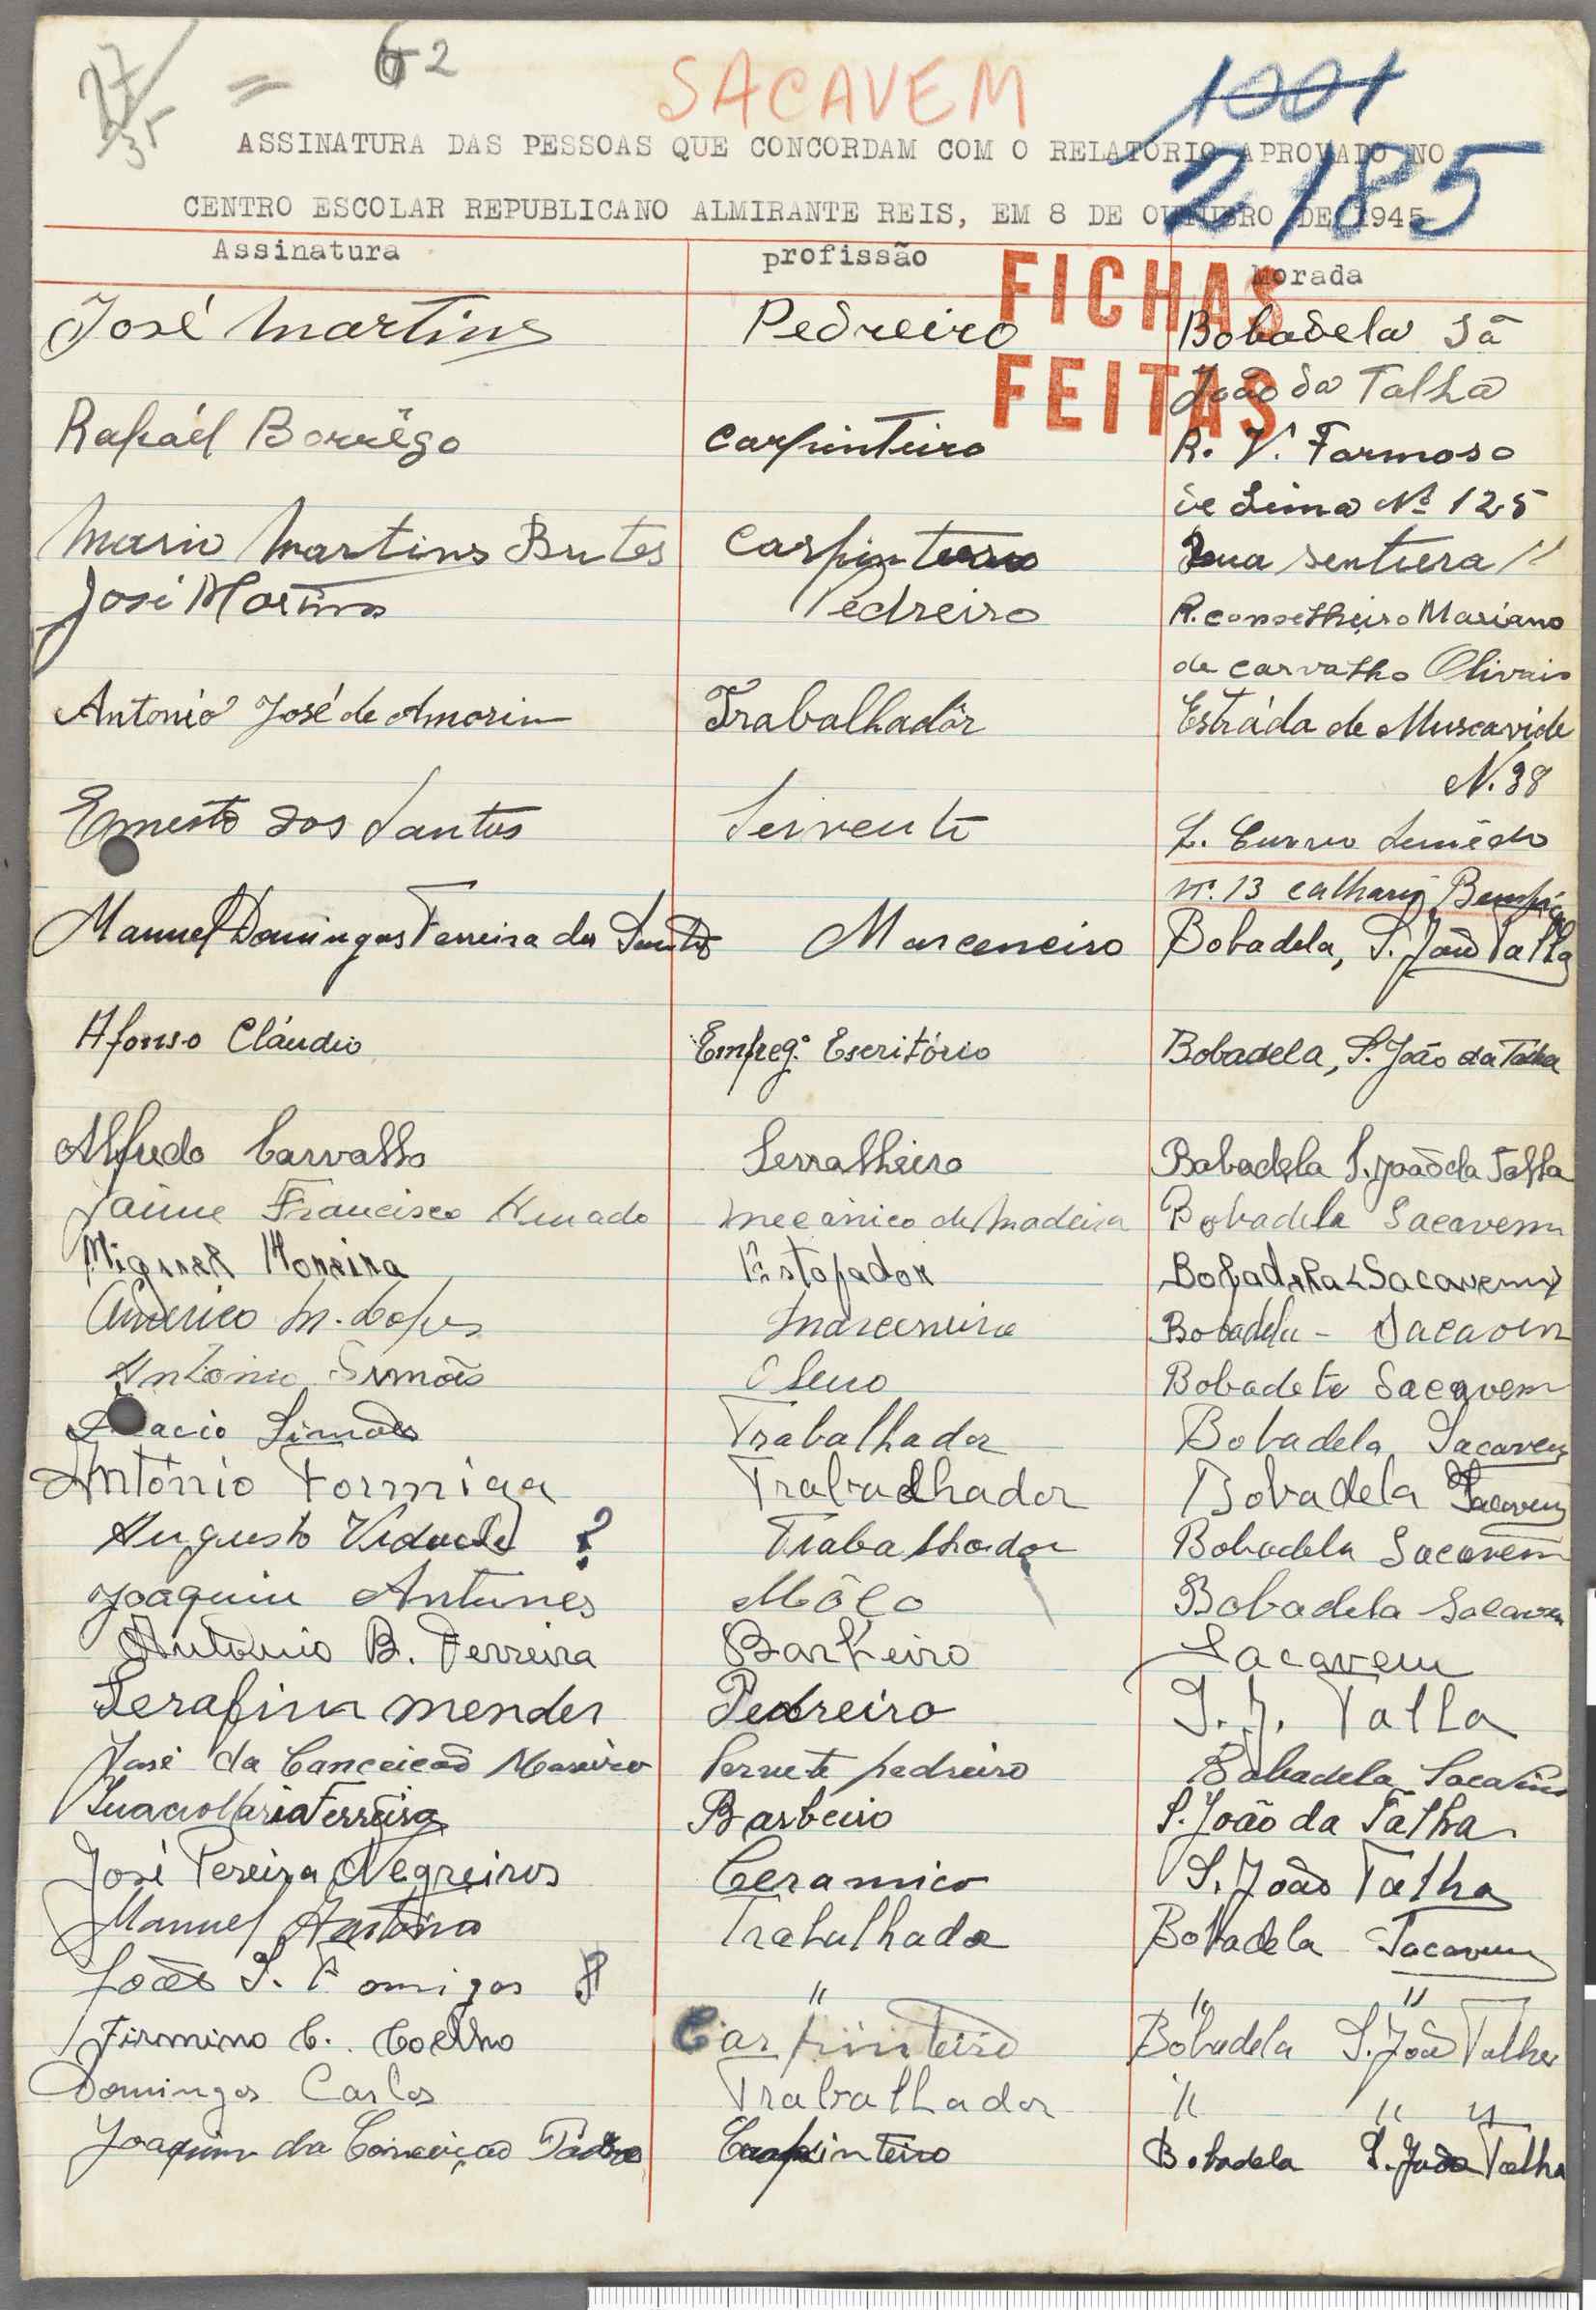 27/35 = 62
SACAVEM
1001
2185
ASSINATURA DAS PESSOAS QUE CONCORDAM COM O RELATÓRIO APROVADO NO
CENTRO ESCOLAR REPUBLICANO ALMIRANTE REIS, EM 8 DE OUTUBRO DE 1945
Assinatura profissão Morada
FICHAS
FEITAS
José Martins Pedreiro Bobadela Sã
João da Talha
Rafaél Borrêgo Carpinteiro R. V. Formoso
de Lima Nº 125
Mario Martins Carpinteiro Rua
José Martins Pedreiro R. conselheiro Mariano
de carvalho Olivais
António José de Amorim Trabalhadôr Estráda de Muscavide
N. 38
Ernesto dos Santos Servente
nº. 13 Bemfica
Manuel Domingos Ferreira dos Santos Marceneiro Bobadela, S. João Talha
Afonso Cláudio Empregº Escritório Bobadela, S. João da Talha
Alfredo Carvalho Serralheiro Bobadela S. João da Talha
Jaime Francisco mecanico de madeira Bobadela Sacavem
Miguel Moreira Estofador Bobadela Sacavem
Americo M. Lopes Marceneiro Bobadela - Sacavem
António Simões Bobadela Sacavem
Simões Trabalhador Bobadela Sacavem
António Formiga Trabalhador Bobadela Sacavem
Augusto ? Trabalhador Bobadela Sacavem
Joaquim Antunes Môço Bobadela Sacavem
Antonio B. Ferreira Barbeiro Sacavem
Serafim mendes Pedreiro S. J. Talha
José da Conceicão Servente pedreiro Bobadela Sacavem
Maria Ferreira Barbeiro S. João da Talha
José Pereira Negreiros Ceramico S. João Talha
Manuel António Trabalhador Bobadela Sacavem
João S. " " "
Firmino C. Coelho Carpinteiro Bobadela S. João Talha
Domingos Carlos Trabalhador " " "
Joaquim da Conceição Carpinteiro Bobadela S. João Talha